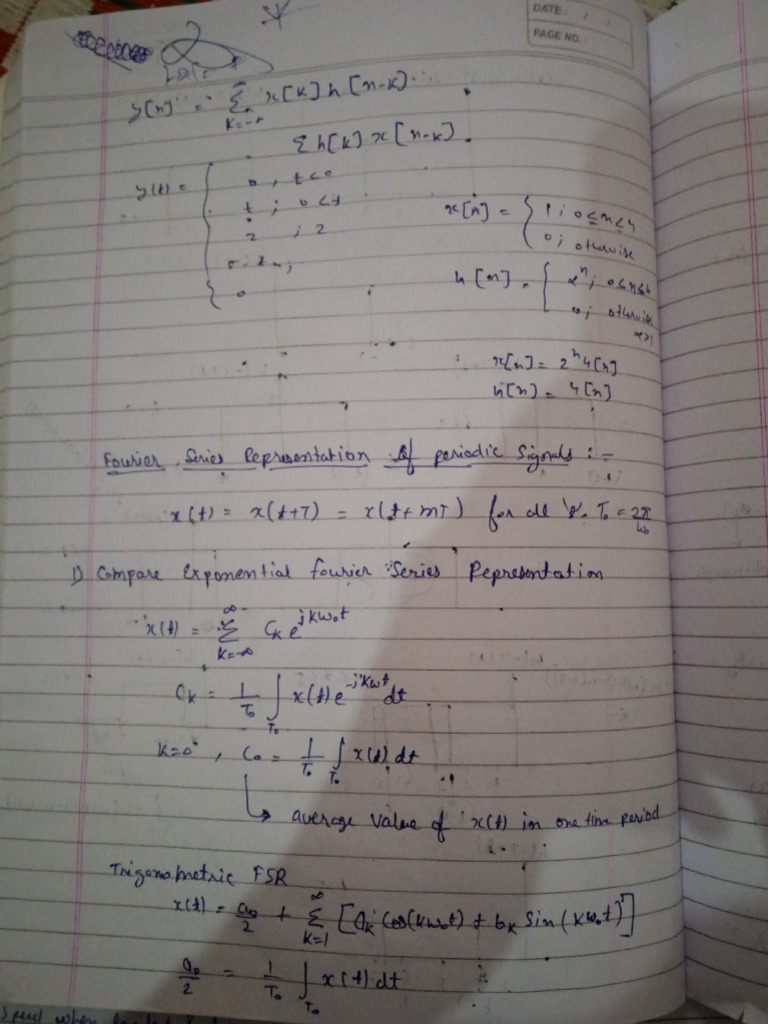 DATE: / /
PAGE NO.:
y[n] = Σ_{k=-∞}^{∞} x[k] h[n-k]
Σ h[k] x[n-k]
y(t) = { 0, t<0
t ; 0<t
2 ; 2
0
x[n] = { 1 ; 0≤n≤4
0; otherwise
h[n] = { αⁿ; 0≤n≤6
0; otherwise
α>1
x[n] = 2ⁿ u[n]
h[n] = u[n]
Fourier Series Representation Of periodic Signals :-
x(t) = x(t+T) = x(t+mT) for all 't'. T₀ = 2π/ω₀
1) Compare Exponential fourier Series Representation
x(t) = Σ_{k=-∞}^{∞} Cₖ e^{jkω₀t}
Cₖ = 1/T₀ ∫_{T₀} x(t) e^{-jkωt} dt
k=0, C₀ = 1/T₀ ∫_{T₀} x(t) dt
↳ average value of x(t) in one time period
Trigonometric FSR
x(t) = a₀/2 + Σ_{k=1}^{∞} [aₖ cos(kω₀t) + bₖ sin(kω₀t)]
a₀/2 = 1/T₀ ∫_{T₀} x(t) dt
speed when